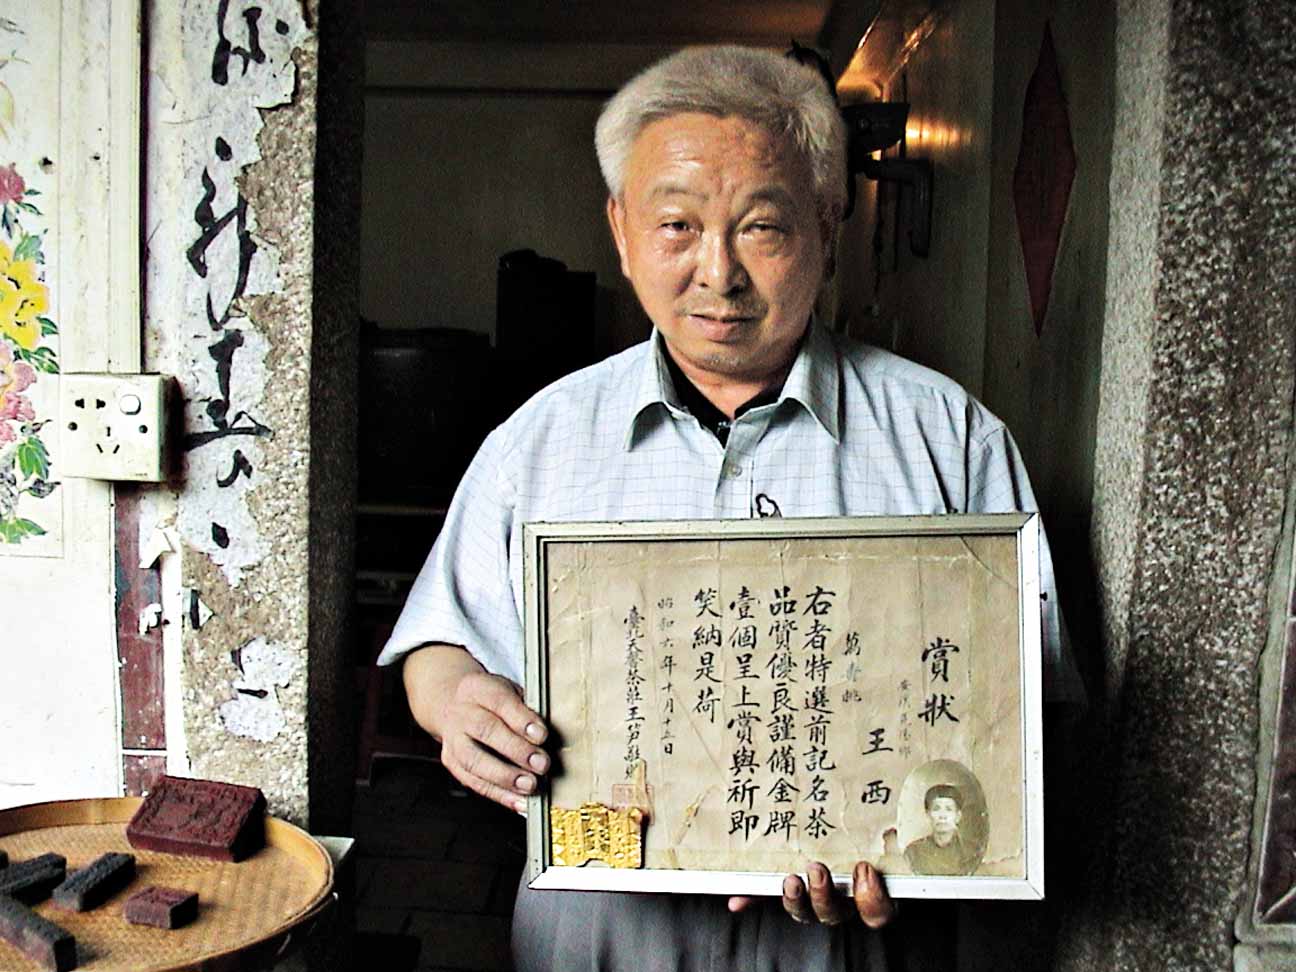 賞狀
王西
萬壽桃
右者特選前記名茶
品質優良謹備金牌
壹個呈上賞與祈即
笑納是荷
昭和六年十月十五日
臺北天馨茶莊王